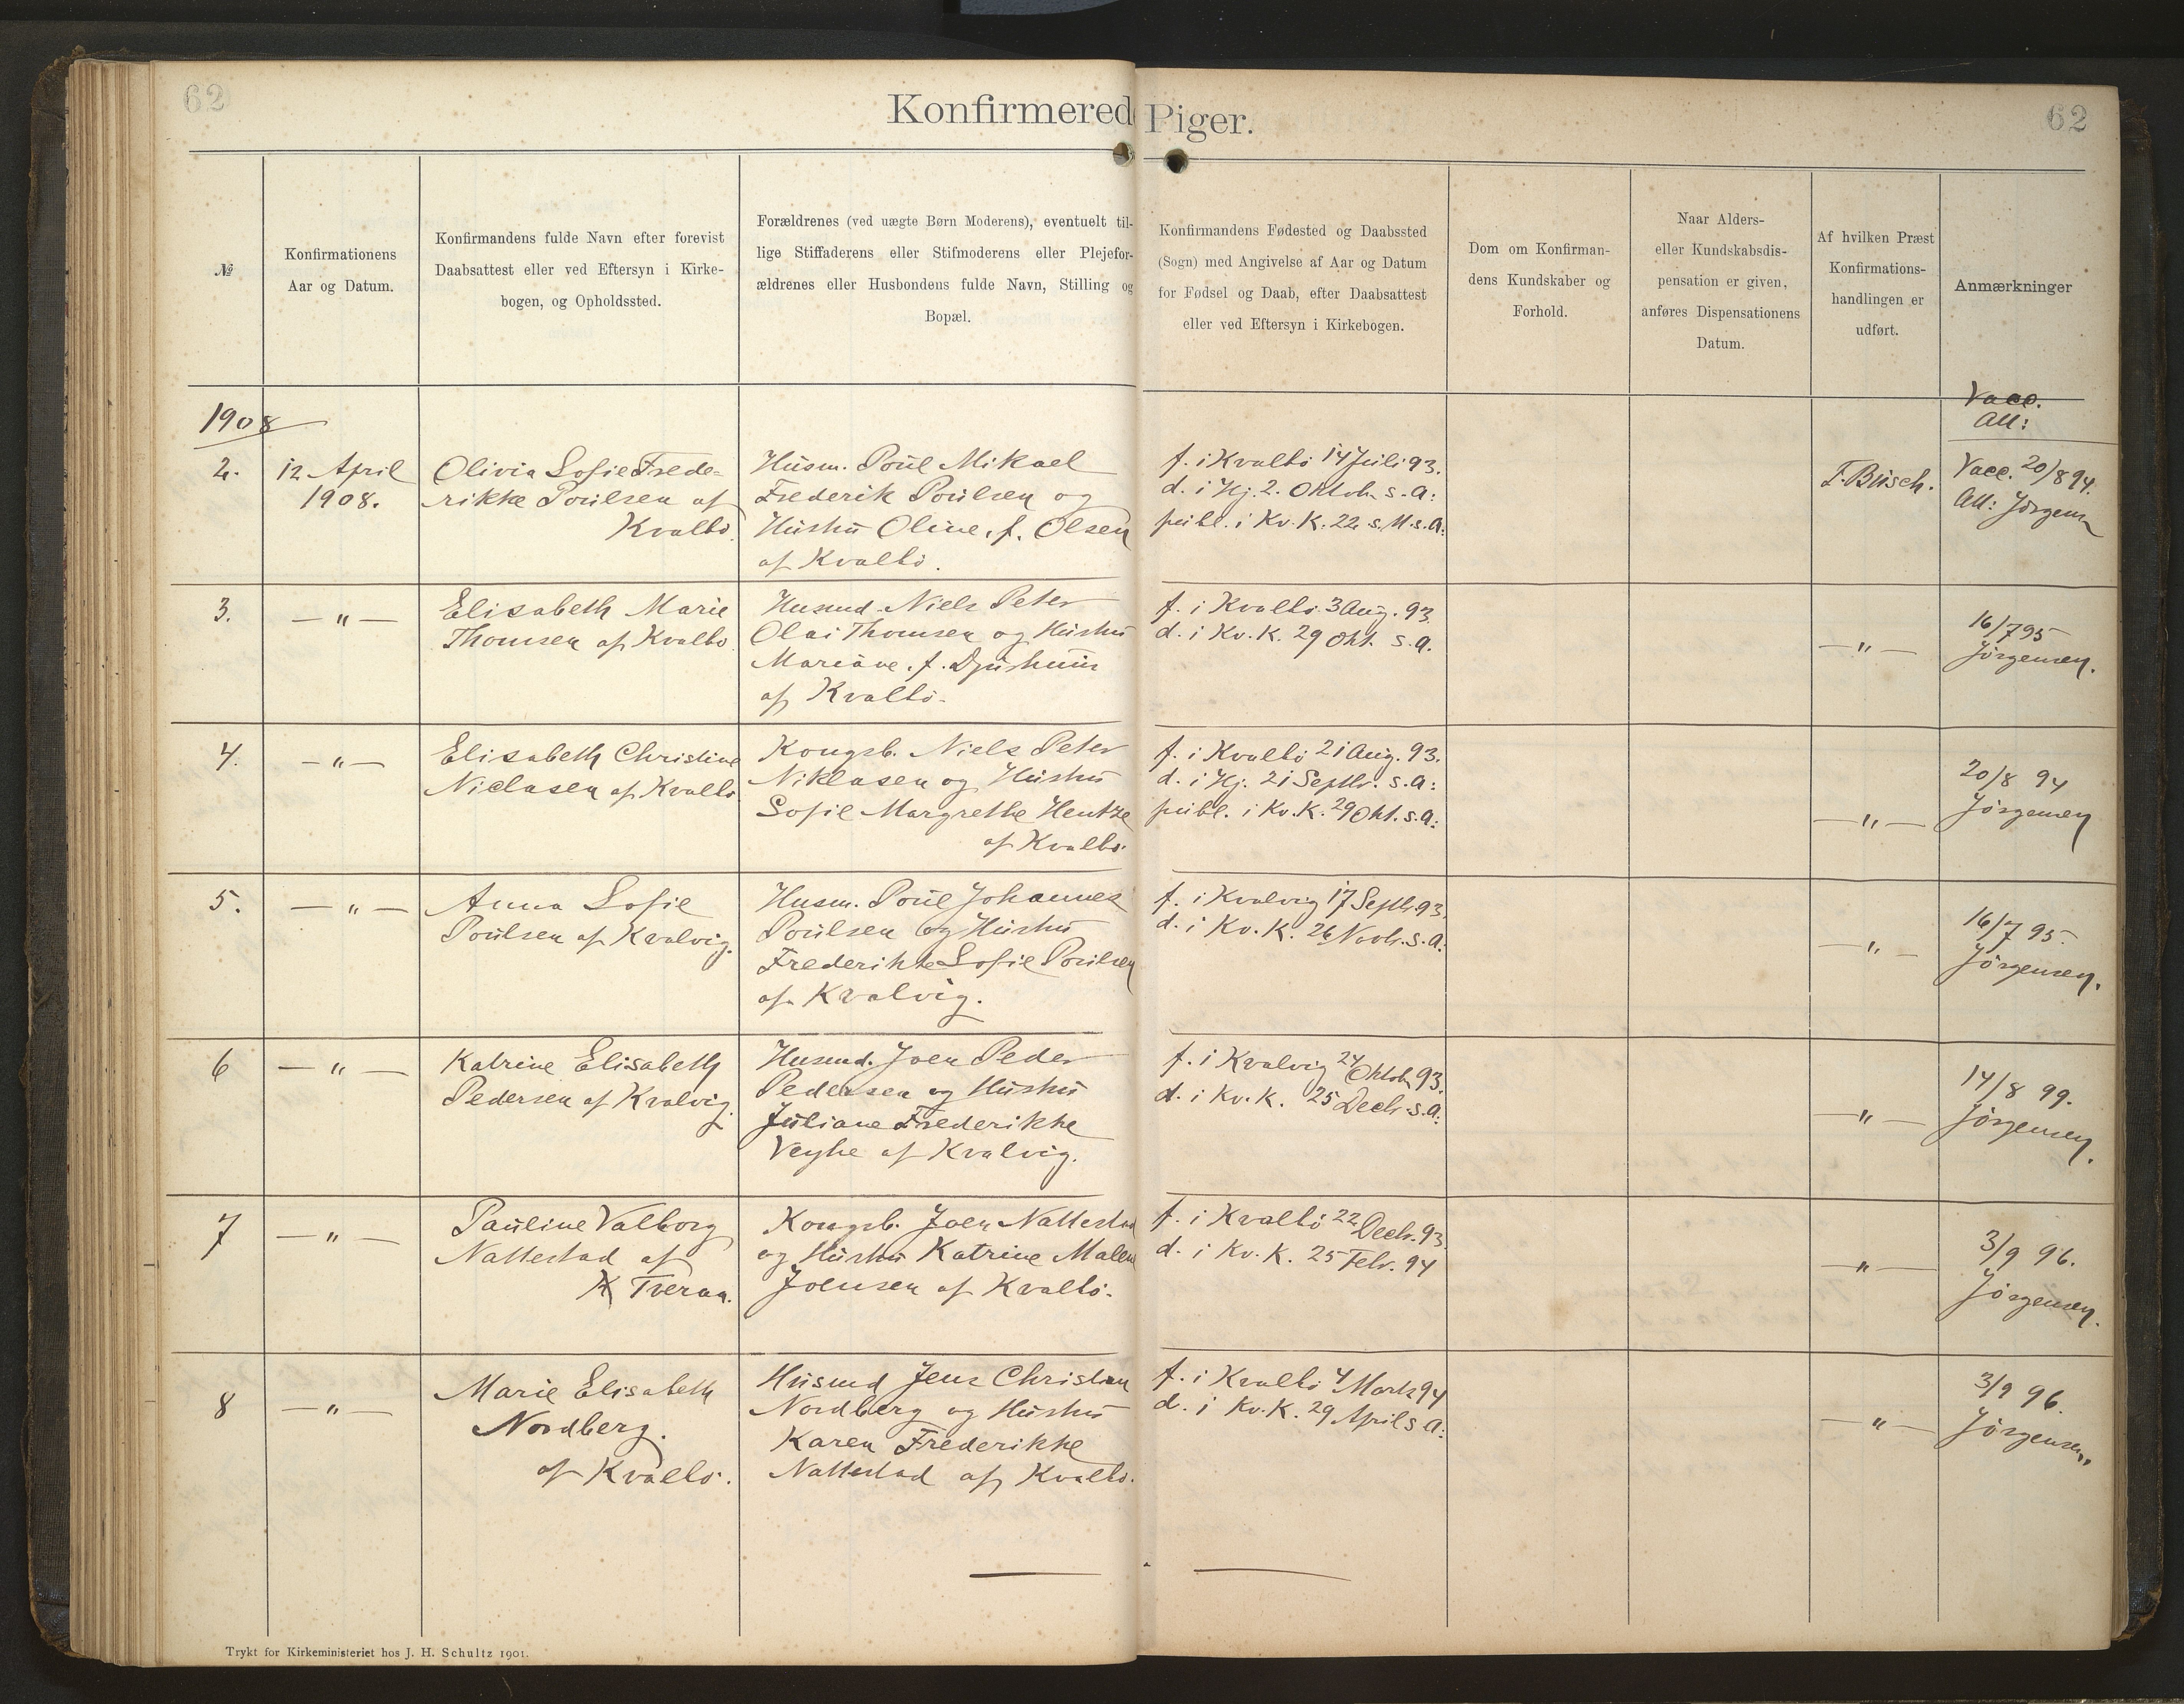 62
62
Konfirmerede Piger.
№
Konfirmationens
Aar og Datum.
Konfirmandens fulde Navn efter forevist
Daabsattest eller ved Eftersyn i Kirke-
bogen, og Opholdssted.
Forældrenes (ved uægte Børn Moderens), eventuelt til-
lige Stiffaderens eller Stifmoderens eller Plejefor-
ældrenes eller Husbondens fulde Navn, Stilling og
Bopæl.
Konfirmandens Fødested og Daabssted
(Sogn) med Angivelse af Aar og Datum
for Fødsel og Daab, efter Daabsattest
eller ved Eftersyn i Kirkebogen.
Dom om Konfirman-
dens Kundskaber og
Forhold.
Naar Alders-
eller Kundskabsdis-
pensation er given,
anføres Dispensationens
Datum.
Af hvilken Præst
Konfirmations-
handlingen er
udført.
Anmærkninger
Vacc.
Att:
1908
2.
12 April
1908.
Olivia Sofie Frede-
rikke Poulsen af
Kvalbö.
Husm. Poul Mikael
Frederik Poulsen og
Hustru Oline, f. Olsen
af Kvalbö.
f. i Kvalbö 14 Juli 93.
d. i Hj. 2. Oktob. s. A:
publ. i Kv. K. 22 s. M. s. A:
F. Büsch.
Vacc. 20/8 94.
Att: Jörgensen
3.
— " —
Elisabeth Marie
Thomsen af Kvalbö.
Husmd. Niels Peter
Olai Thomsen og Hustru
Mariane, f. Djurhuus
af Kvalbö.
f. i Kvalbö 3 Aug. 93.
d. i Kv. K. 29 Okt. s. A.
— " —
16/7 95
Jörgensen.
4.
— " —
Elisabeth Christine
Niclasen af Kvalbö
Kongsb. Niels Peter
Niklasen og Hustru
Sofie Margrethe Hentze
af Kvalbö.
f. i Kvalbö 21 Aug. 93.
d. i Hj. 21 Septb. s. A:
publ. i Kv. K. 29 Okt. s. A:
— " —
20/8 94
Jörgensen
5.
— " —
Anna Sofie
Poulsen af Kvalvig.
Husm. Poul Johannes
Poulsen og Hustru
Frederikke Sofie Poulsen
af Kvalvig.
f. i Kvalvig 17 Septb. 93.
d. i Kv. K. 26 Novb. s. A.
— " —
16/7 95.
Jörgensen.
6
— " —
Katrine Elisabeth
Pedersen af Kvalvig.
Husmd. Joen Peder
Pedersen og Hustru
Juliane Frederikke
Veyhe af Kvalvig.
f. i Kvalvig 24 Oktob. 93.
d. i Kv. K. 25 Decb. s. A.
— " —
14/8 99.
Jörgensen.
7
— " —
Pauline Valborg
Nattestad af
Tveraa.
Kongsb. Joen Nattestad
og Hustru Katrine Malene
Joensen af Kvalbö.
f. i Kvalbö 22 Decb. 93.
d. i Kv. K. 25 Febr. 94
— " —
3/9 96.
Jörgensen.
8
— " —
Marie Elisabeth
Nordberg.
af Kvalbö.
Husmd Jens Christian
Nordberg og Hustru
Karen Frederikke
Nattestad af Kvalbö.
f. i Kvalbö 4 Marts 94
d. i Kv. K. 29 April s A:
— " —
3/9 96.
Jörgensen.
Trykt for Kirkeministeriet hos J. H. Schultz 1901.